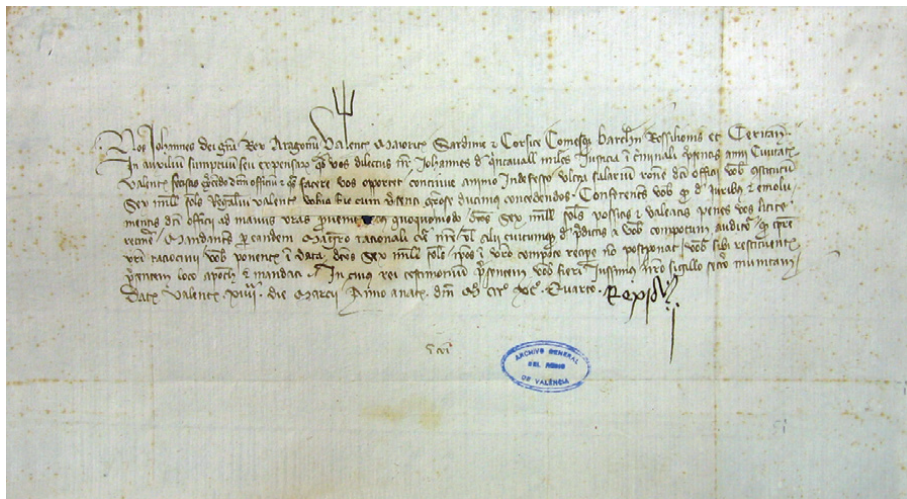 Nos Johannes dei gra Rex Aragonu Valencie Maioric Sardinie & Corsice Comesq barchn Rossilionis et Ceritan
In auxilium sumptuu seu expensar q vos dilectus nr Johannes d miles Justicia i criminali pntis anni Civitatis
Valencie dcm officiu & q facere vos oportet continue animo Indefesso ultra salariu rone dci officii vob constitutu
Sex mille solos Regaliu Valencie vobis hie cum pnti graciose ducimus concedendos Conferentes vob q d Juribus & emolu
mentis dci officii ad manus vras quoquomodo dcos Sex mille solos possitis & valeatis penes vos licite
retinere Mandantes p eandem Magro racionali Curie nre vl alii cuicumq d pdictis a vob compotum
vri racocinii vob ponente i data dcos Sex mille solos ipos i vro compoto recipe no postponat vob sibi restituente
pntem loco apoche & mandati In cuius rei testimoniu pntem vob fieri Jussimus nro sigillo secreto munitam
Dat Valencie xiiii die Marcii Anno anat dni M CCC XC Quarto Rex
ARCHIVO GENERAL
DEL REINO
DE VALENCIA